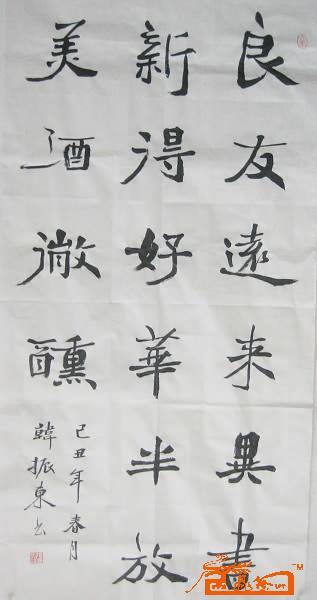 良友遠来異書
新得好華半放
美酒微醺
己丑年春月
韓振東书